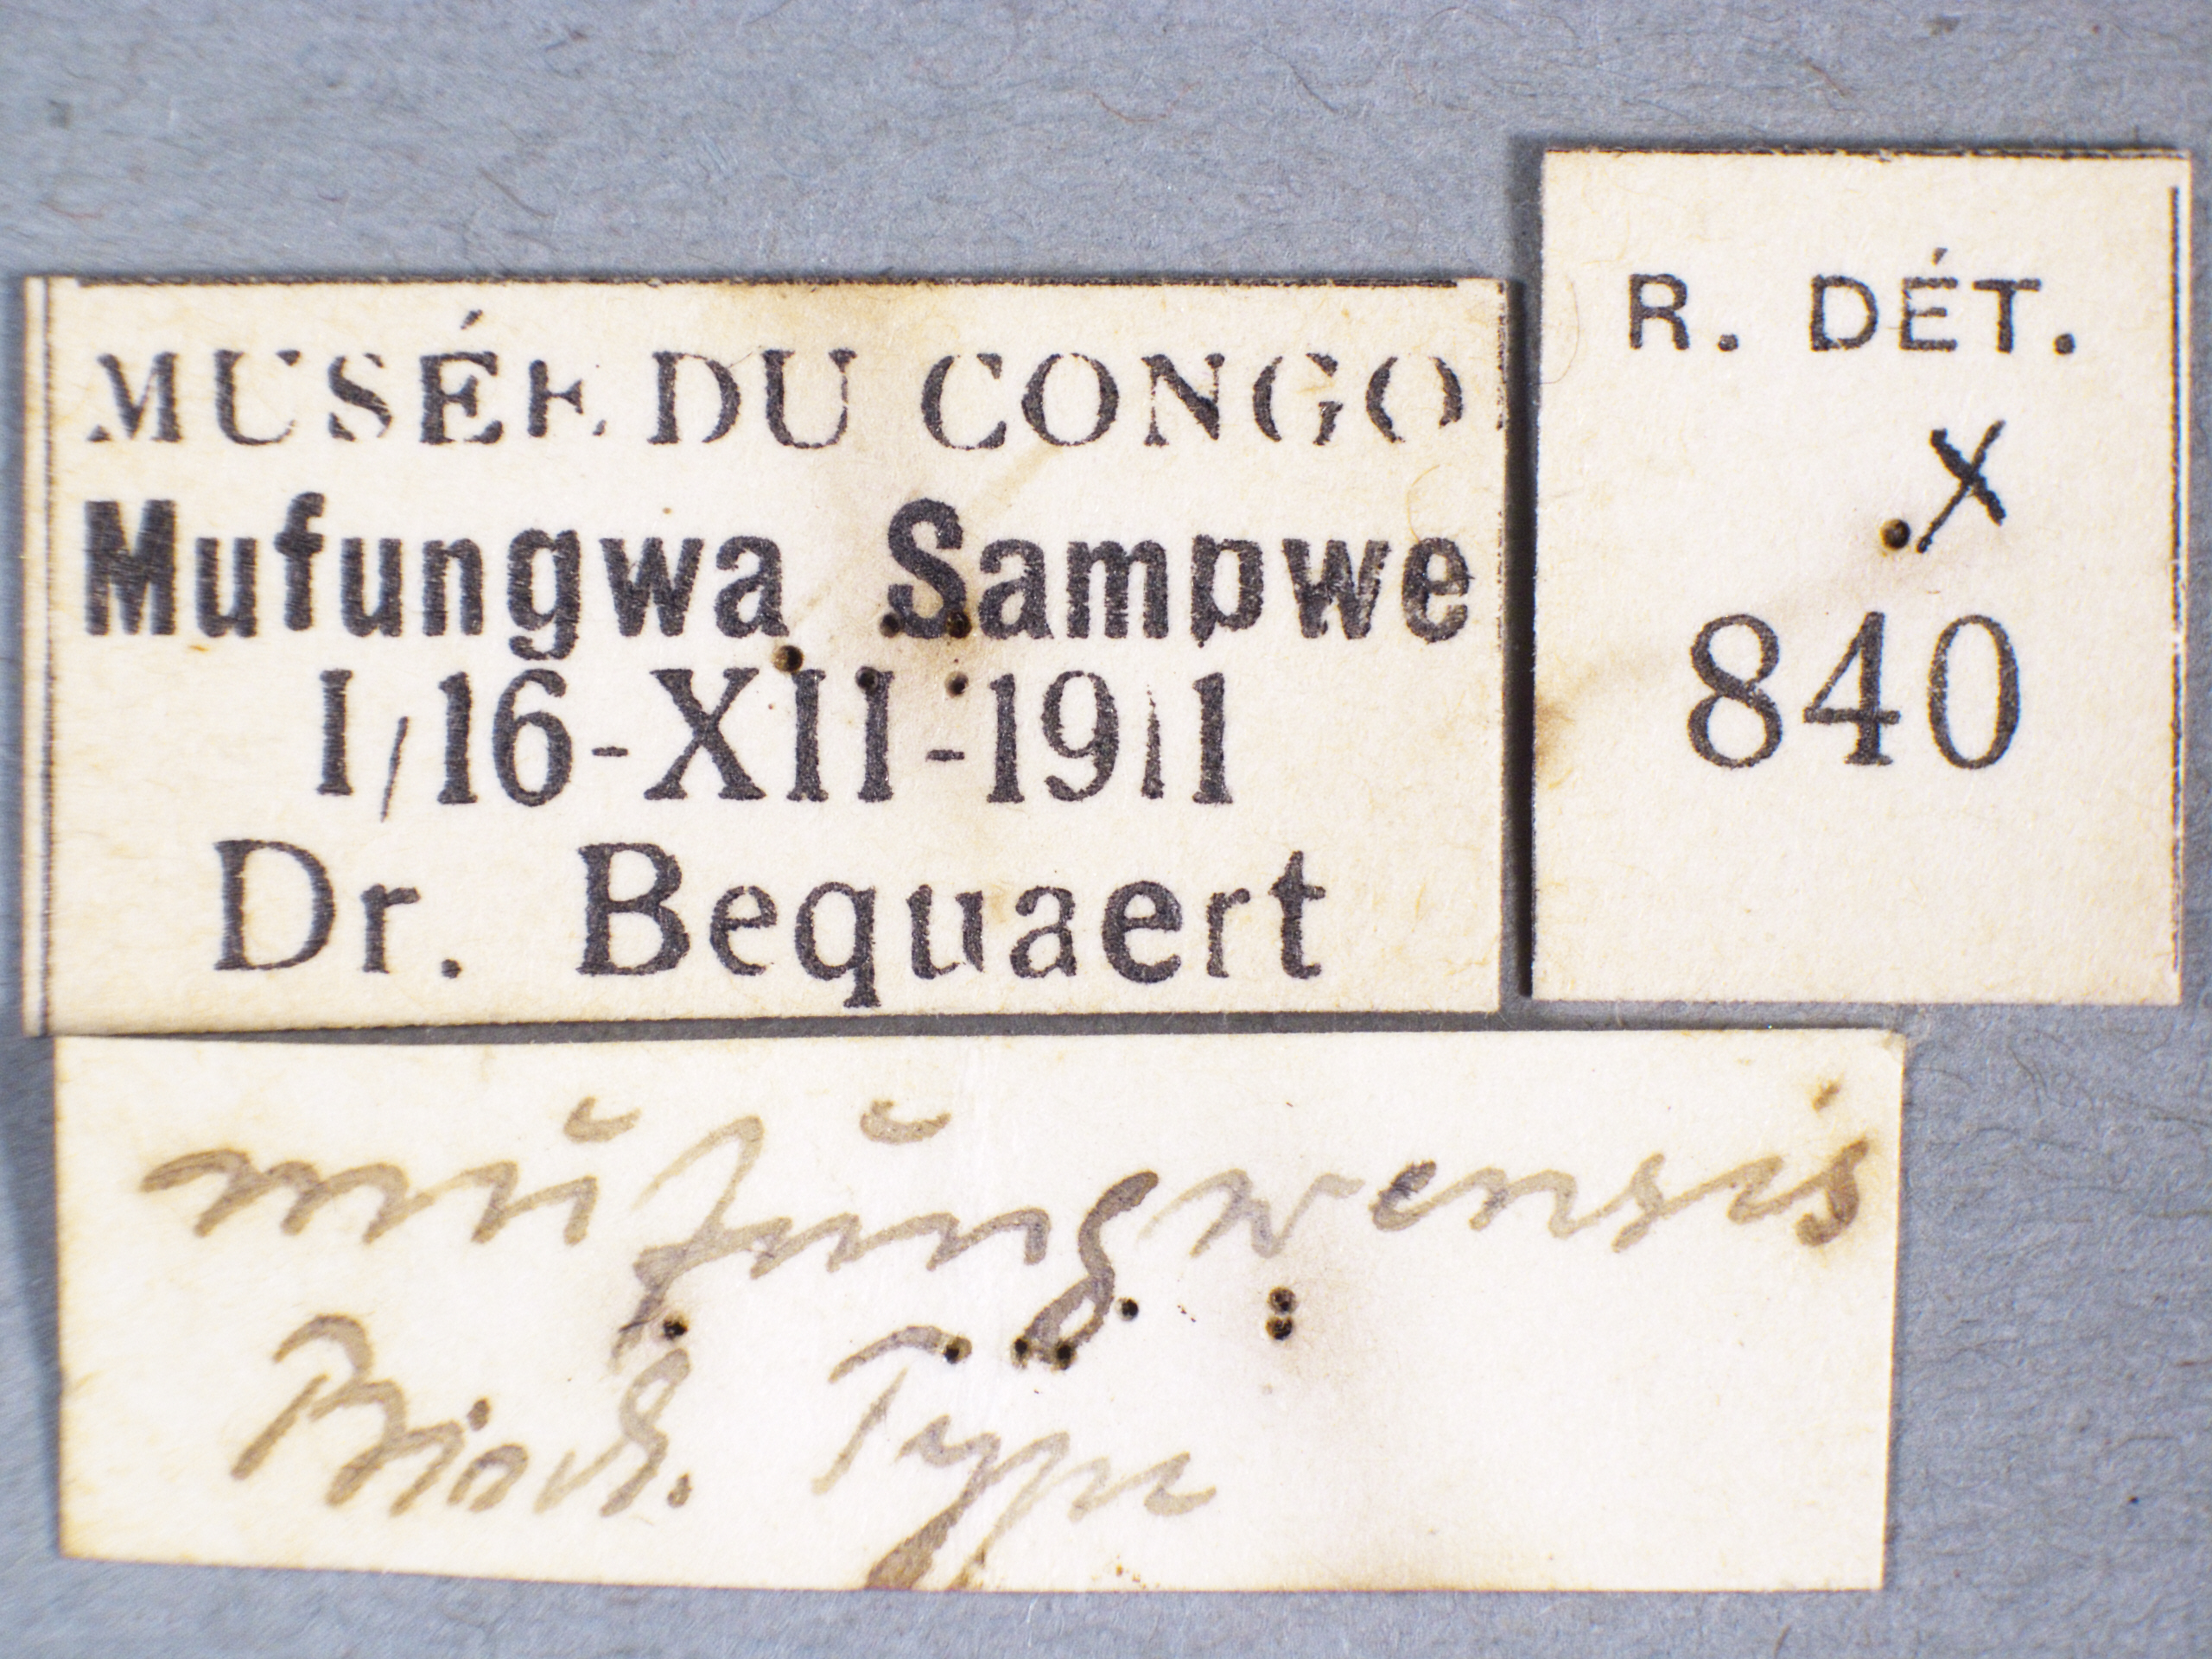 MUSÉE DU CONGO
Mufungwa Sampwe
1/16-XII-1911
Dr. Bequaert
R. DÉT.
X
840
mŭfŭngwensis
Type